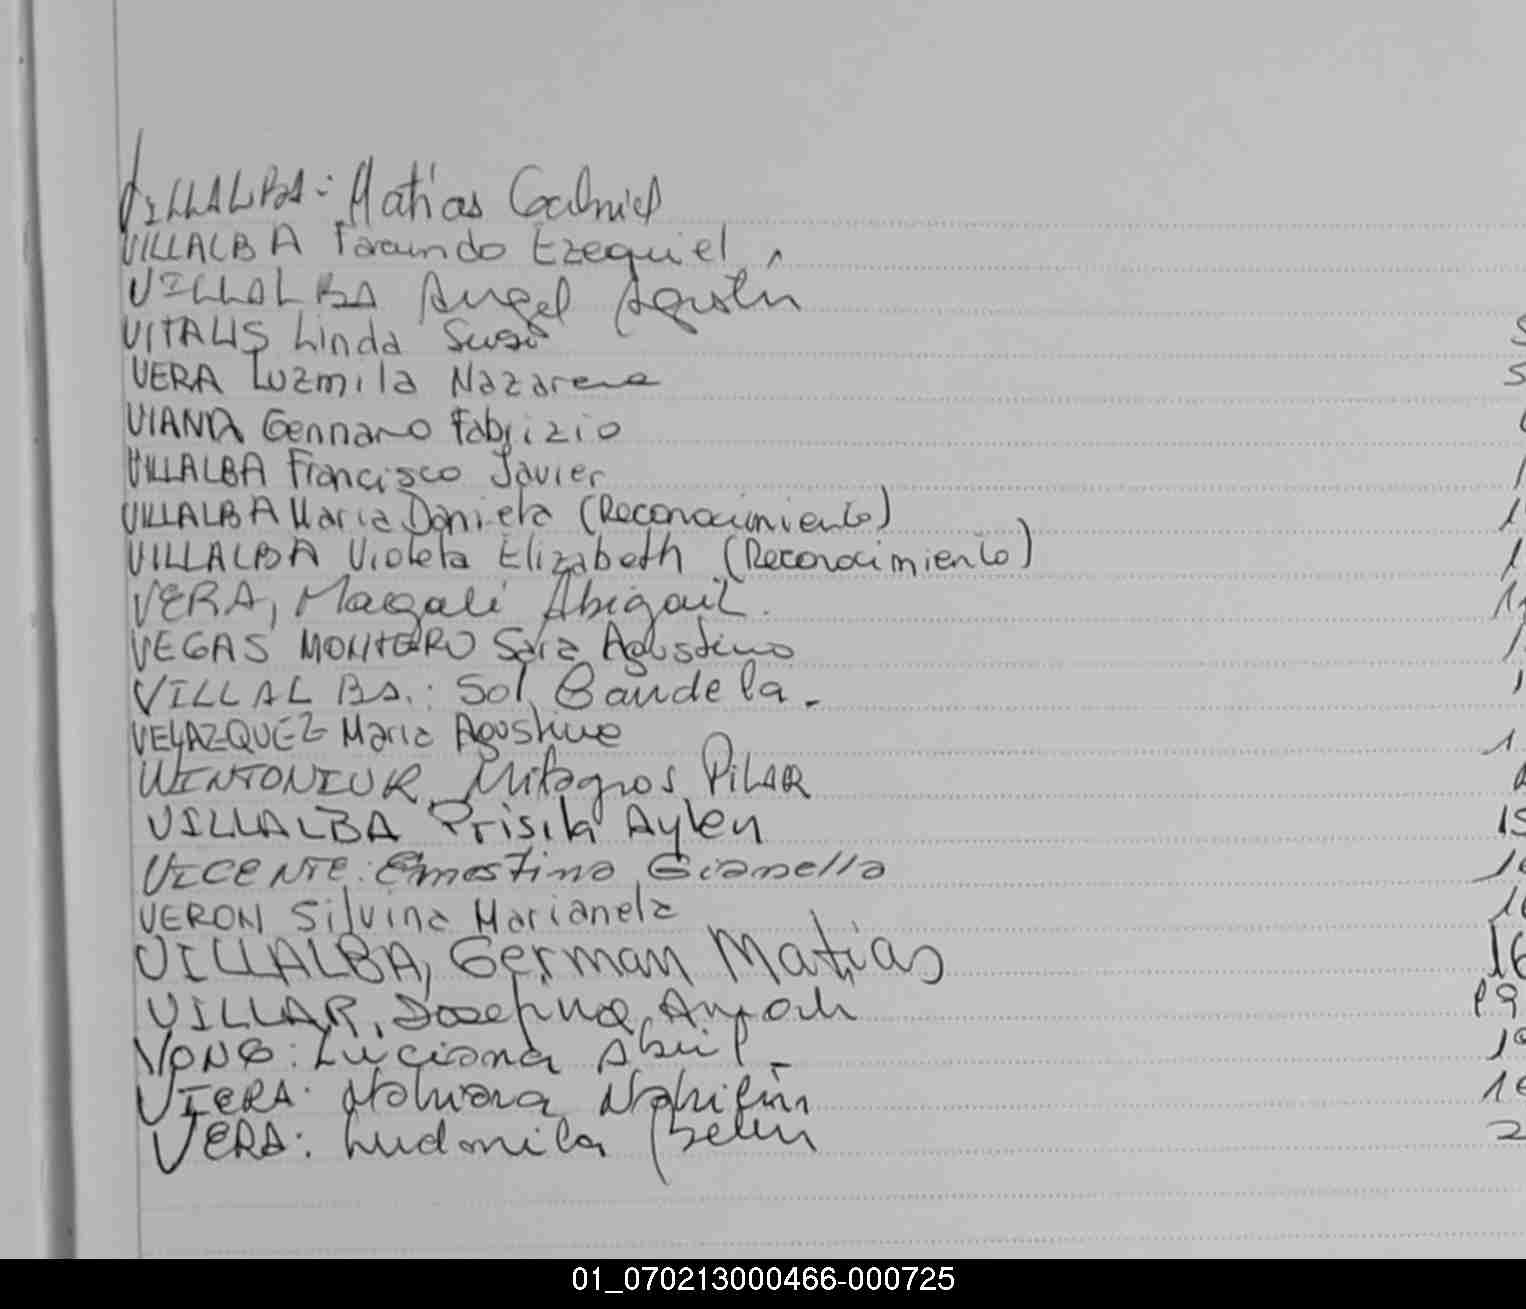 VILLALBA: Matías Gabriel
VILLALBA Facundo Ezequiel
VILLALBA Angel Agustín
VITALIS Linda
VERA Luzmila Nazarena
VIANA Gennaro Fabrizio
VILLALBA Francisco Javier
VILLALBA Maria Daniela (Reconocimiento)
VILLALBA Violeta Elizabeth (Reconocimiento)
VERA, Magali Abigail.
VEGAS MONTERO Sara Agustina
VILLALBA.: Sol Candela.
VELAZQUEZ Maria Agustina
WINTONIUK Milagros PILAR
VILLALBA Prisila Aylen
VICENTE: Ernestina Gianella
VERON Silvina Marianela
VILLALBA, German Matias
VILLAR, Josefina
Luciana Abril
VIERA:
VERA: Ludmila Belen
01_070213000466-000725